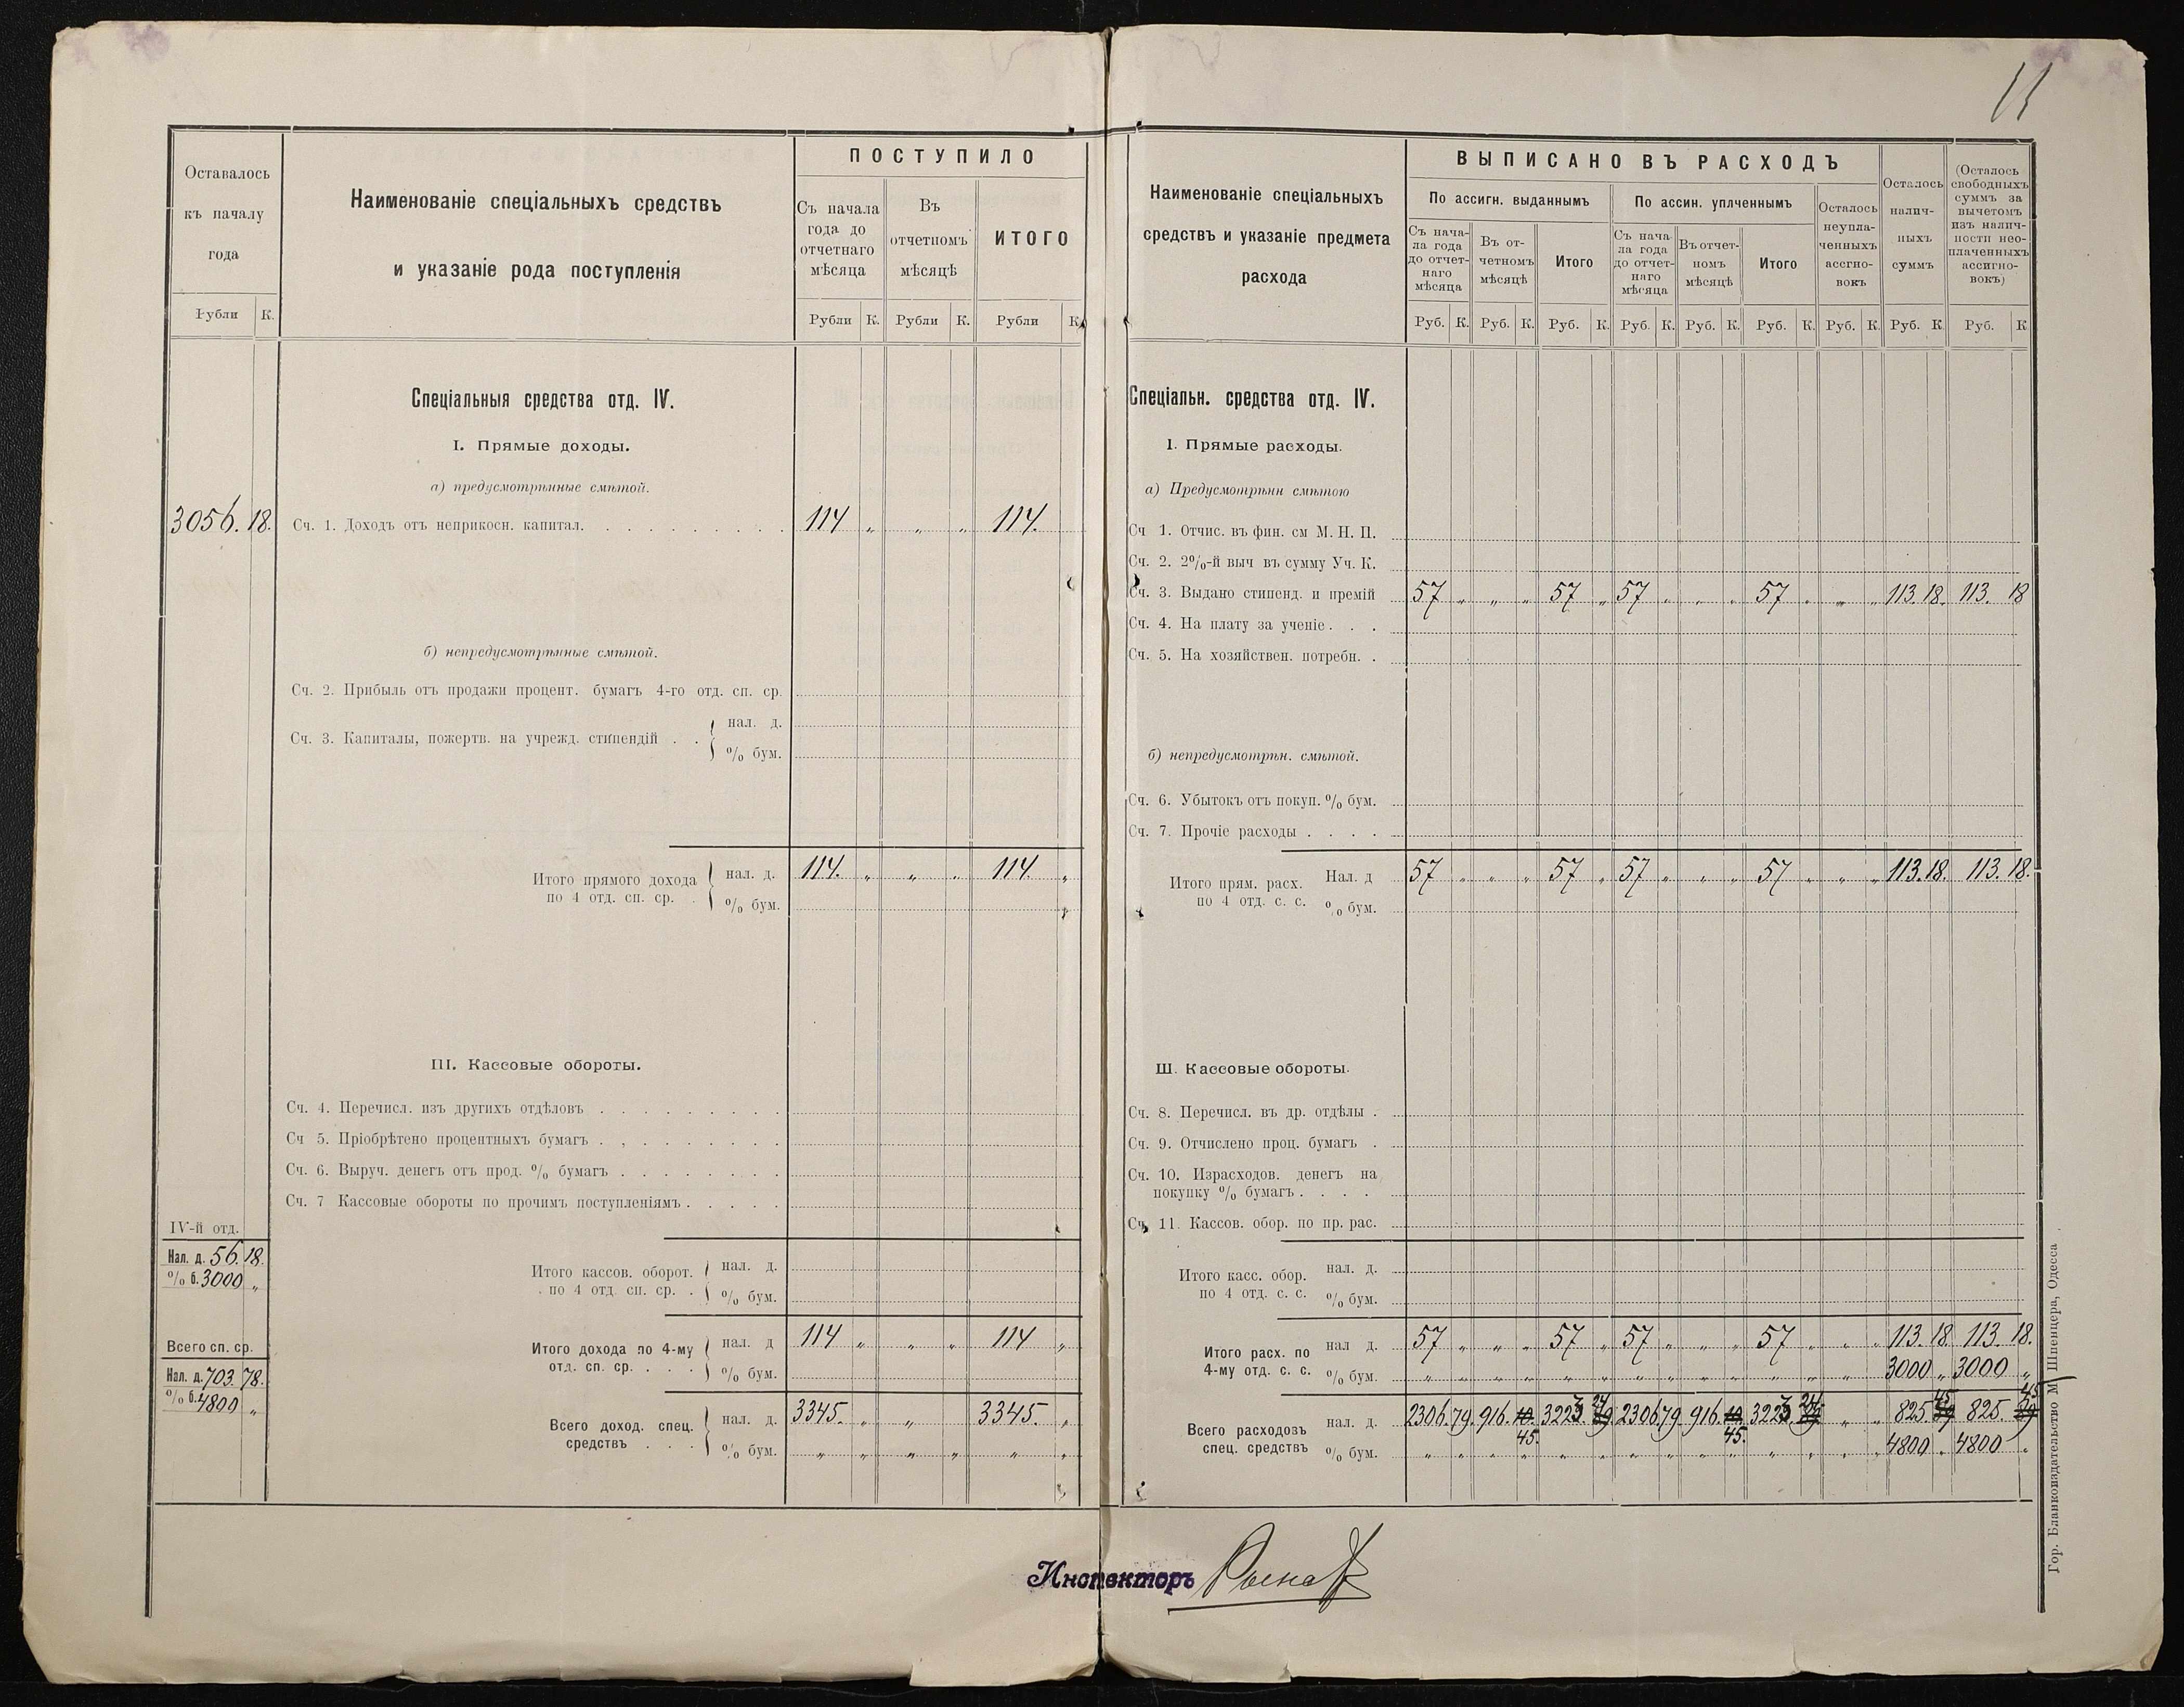 11
Оставалось
къ началу
года
Рубли К.
Наименованіе спеціальныхъ средствъ
и указаніе рода поступленія
ПОСТУПИЛО
Съ начала
года до
отчетнаго
мѣсяца
Въ
отчетномъ
мѣсяцѣ
ИТОГО
Рубли К. Рубли К. Рубли К.
Спеціальныя средства отд. IV.
I. Прямые доходы.
а) предусмотрѣнные смѣтой.
3056. 18. Сч. 1. Доходъ отъ неприкосн. капитал. 114 „ „ „ 114.
б) непредусмотрѣнные смѣтой.
Сч. 2. Прибыль отъ продажи процент. бумагъ 4-го отд. сп. ср.
Сч. 3. Капиталы, пожертв. на учрежд. стипендій . . { нал. д.
% бум.
Итого прямого дохода
по 4 отд. сп. ср. . { нал. д. 114. „ „ „ 114. „
% бум.
III. Кассовые обороты.
Сч. 4. Перечисл. изъ другихъ отдѣловъ
Сч 5. Пріобрѣтено процентныхъ бумагъ
Сч. 6. Выруч. денегъ отъ прод. % бумагъ
Сч. 7 Кассовые обороты по прочимъ поступленіямъ
IV-й отд.
Нал. д. 56. 18.
% б. 3000 „
Итого кассов. оборот.
по 4 отд. сп. ср. . { нал. д.
% бум.
Всего сп. ср.
Нал. д. 703. 78.
% б. 4800 „
Итого дохода по 4-му
отд. сп. ср. . . . { нал. д 114 „ „ „ 114 „
% бум.
Всего доход. спец.
средствъ . . . { нал. д. 3345. „ „ 3345. „
% бум. „ „ „ „ „ „
Наименованіе спеціальныхъ
средствъ и указаніе предмета
расхода
ВЫПИСАНО ВЪ РАСХОДЪ
По ассигн. выданнымъ
Съ нача-
ла года
до отчет-
наго
мѣсяца
Въ от-
четномъ
мѣсяцѣ
Итого
По ассин. уплченнымъ
Съ нача-
ла года
до отчет-
наго
мѣсяца
Въ отчет-
номъ
мѣсяцѣ
Итого
Осталось
неупла-
ченныхъ
ассгно-
вокъ
Осталось
налич-
ныхъ
суммъ
(Осталось
свободныхъ
суммъ за
вычетомъ
изъ налич-
ности нео-
плаченныхъ
ассигно-
вокъ)
Руб. К. Руб. К. Руб. К. Руб. К. Руб. К. Руб. К. Руб. К. Руб. К. Руб. К
Спеціальн. средства отд. IV.
I. Прямые расходы.
а) Предусмотрѣнн смѣтою
Сч 1. Отчис. въ фин. см М. Н. П.
Сч. 2. 2%-й выч въ сумму Уч. К.
Сч. 3. Выдано стипенд. и премій 57 „ „ „ 57 „ 57 „ „ „ 57 „ „ „ 113. 18. 113. 18
Сч. 4. На плату за ученіе . . .
Сч. 5. На хозяйствен. потребн. .
б) непредусмотрѣн. смѣтой.
Сч. 6. Убытокъ отъ покуп. % бум.
Сч. 7. Прочіе расходы . . . .
Итого прям. расх.
по 4 отд. с. с. Нал. д 57 „ „ „ 57 „ 57 „ „ „ 57 „ „ „ 113. 18. 113. 18.
% бум.
Ш. Кассовые обороты.
Сч. 8. Перечисл. въ др. отдѣлы .
Сч. 9. Отчислено проц. бумагъ .
Сч. 10. Израсходов. денегъ на
покупку % бумагъ . . . .
Сч. 11. Кассов. обор. по пр. рас.
Итого касс. обор.
по 4 отд. с. с. нал. д.
% бум.
Итого расх. по
4-му отд. с. с. нал д. 57 „ „ „ 57 „ 57 „ „ „ 57 „ „ „ 113. 18 113. 18.
% бум. „ „ „ „ „ „ „ „ „ „ „ „ „ „ 3000 „ 3000 „
Всего расходовъ
спец. средствъ нал. д. 2306. 79. 916. 45. 3223. 24 2306 79 916. 45. 3223. 24 „ „ 825. 45 825. 45
% бум. „ „ „ „ „ „ „ „ „ „ „ „ „ „ 4800 „ 4800 „
Инспекторъ
Гор. Бланкоиздательство М Шпенцера, Одесса